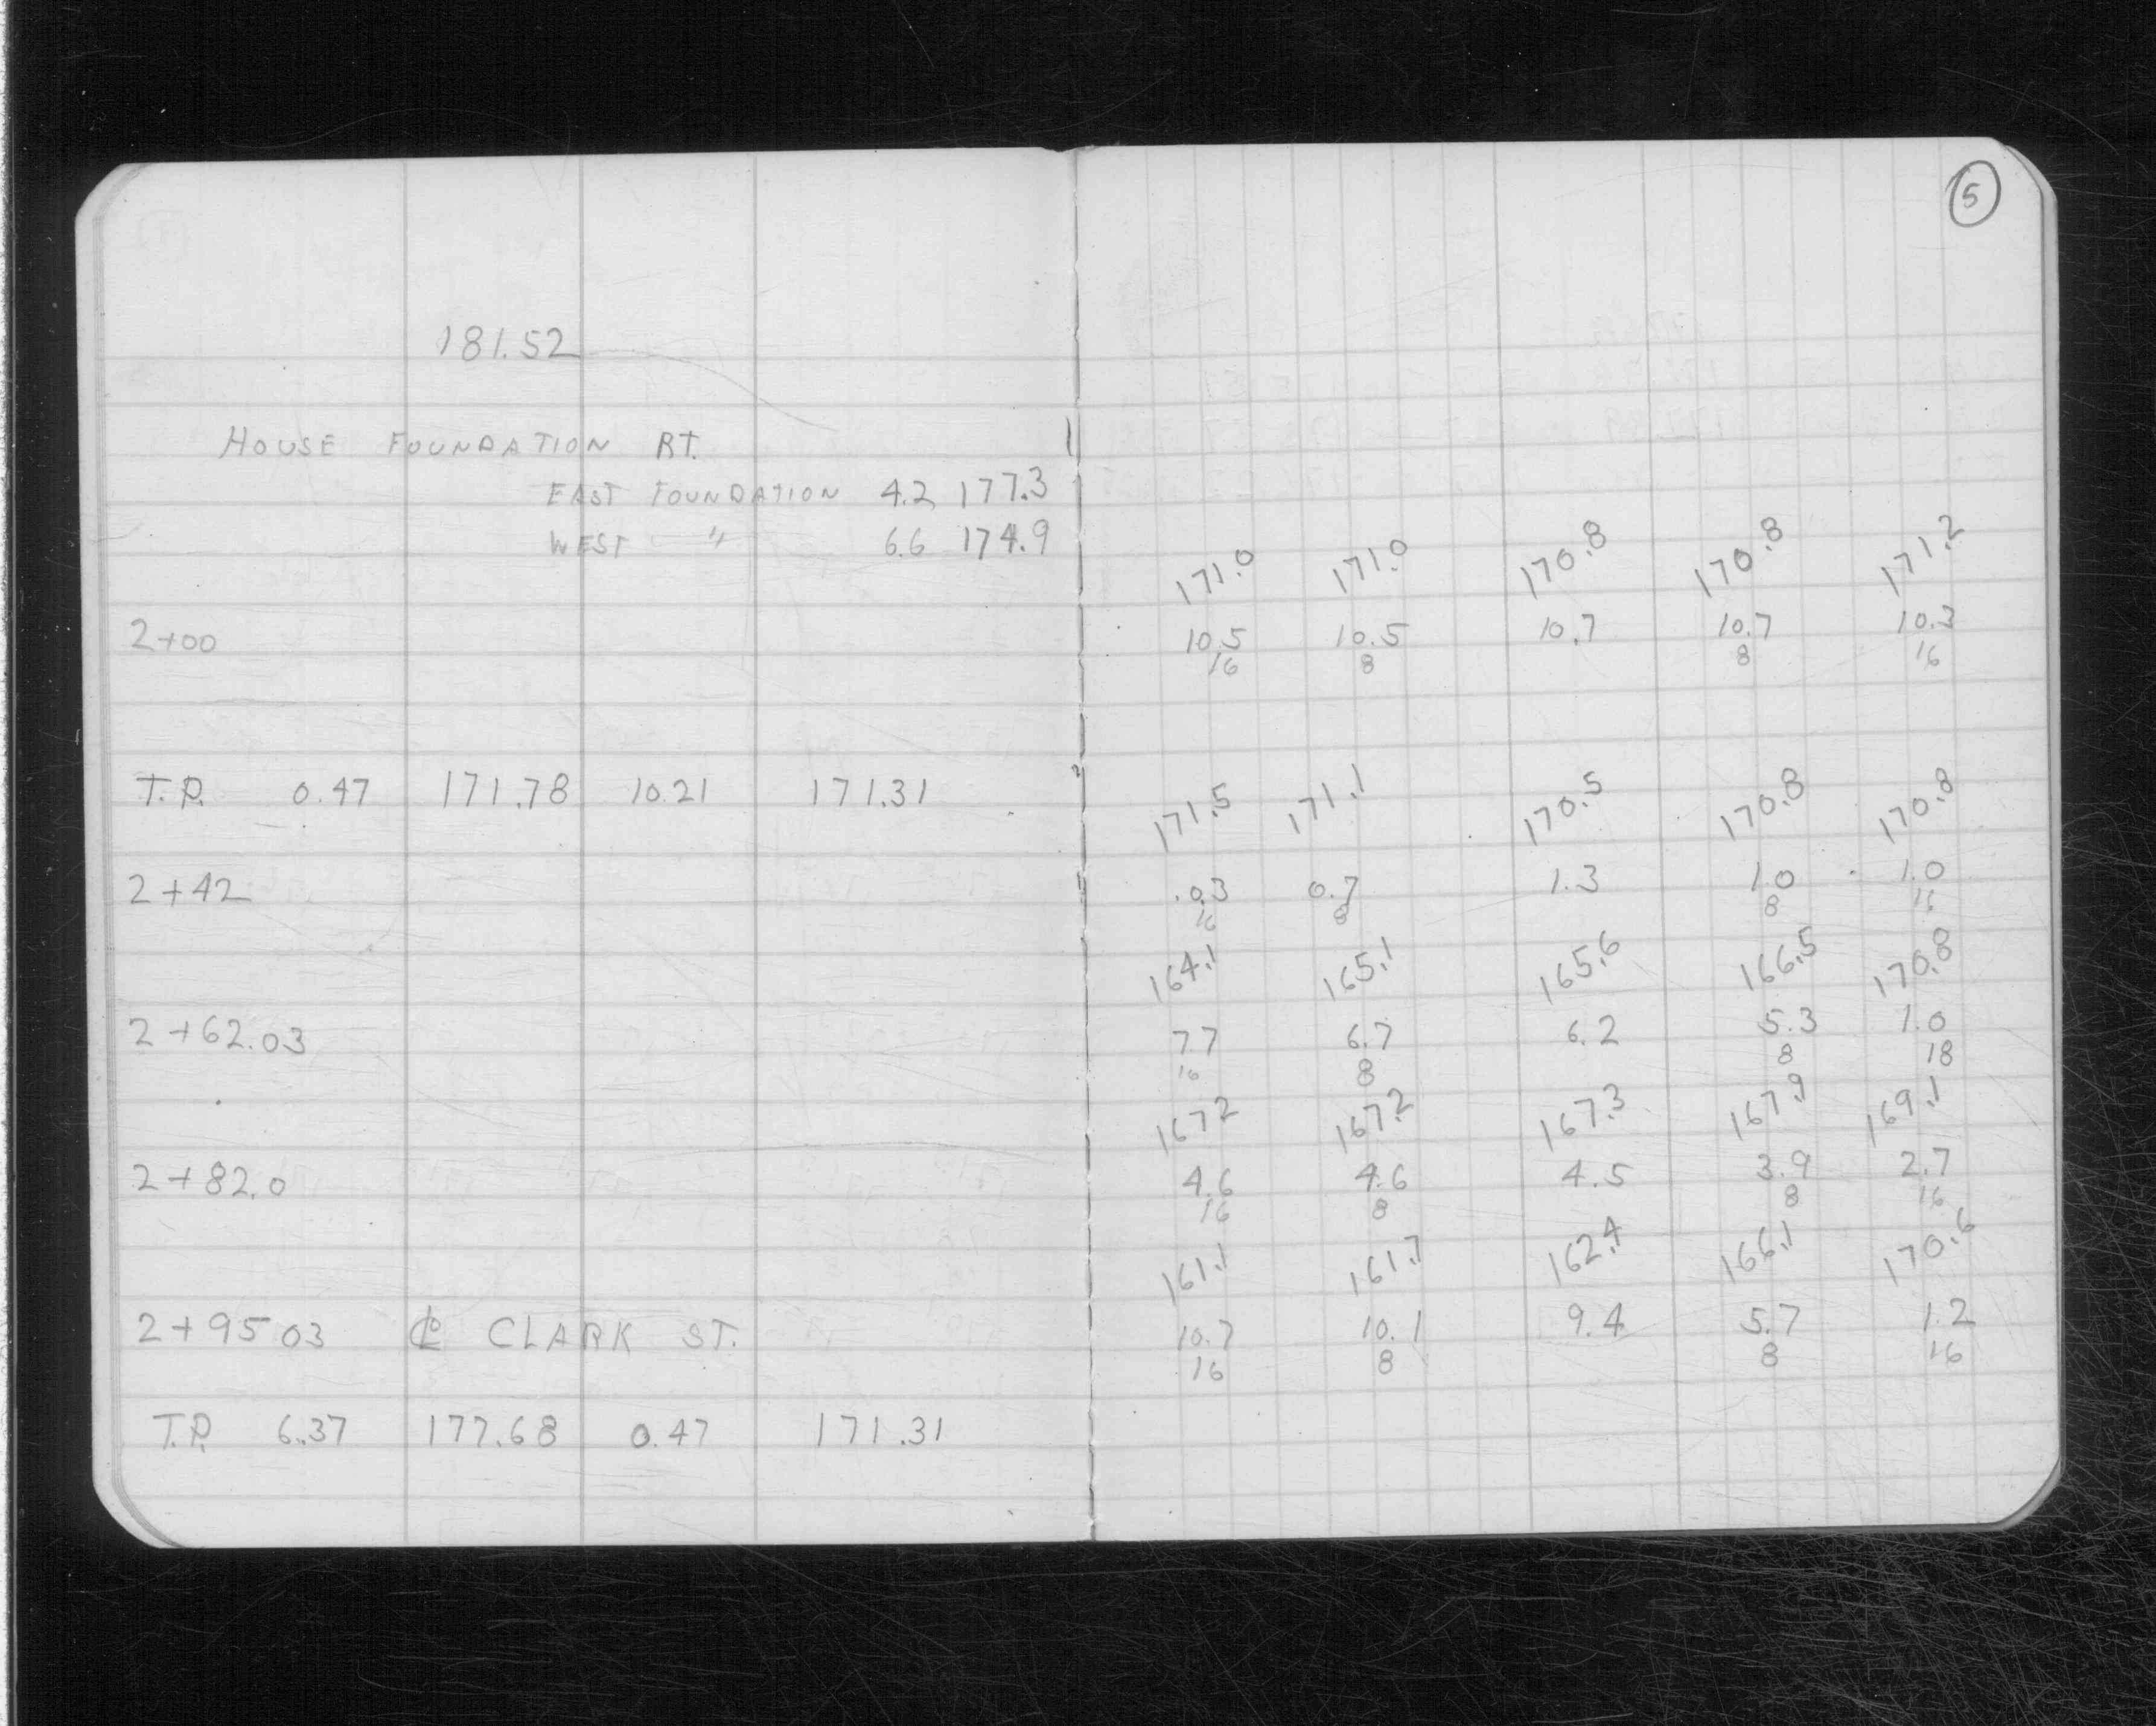 5
181.52
HOUSE FOUNDATION RT.
EAST FOUNDATION 4.2 177.3
WEST " 6.6 174.9
171.0 171.0 170.8 170.8 171.2
2+00 10.5 10.5 10.7 10.7 10.3
16 8 8 16
T.P. 0.47 171.78 10.21 171.31
171.5 171.1 170.5 170.8 170.8
2+42 0.3 0.7 1.3 1.0 1.0
16 8 8 16
164.1 165.1 165.6 166.5 170.8
2+62.03 7.7 6.7 6.2 5.3 1.0
16 8 8 18
167.2 167.2 167.3 167.9 169.1
2+82.0 4.6 4.6 4.5 3.9 2.7
16 8 8 16
161.1 161.7 162.4 166.1 170.6
2+95 03 ℄ CLARK ST. 10.7 10.1 9.4 5.7 1.2
16 8 8 16
T.P. 6.37 177.68 0.47 171.31